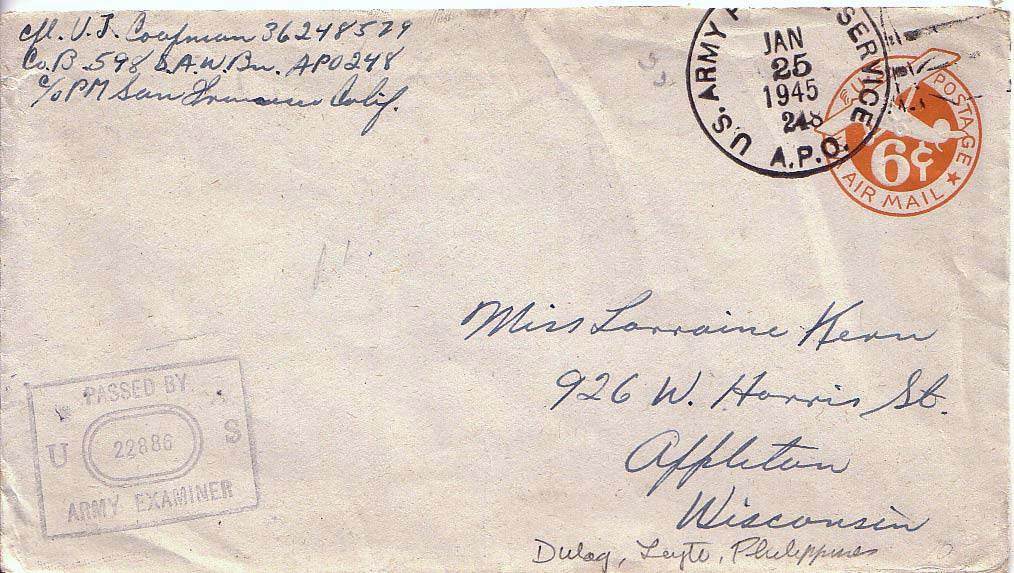 Cpl. V. J. Coofman 36248529
Co. B. 598 S.A.W. Bn. APO 248
c/o PM San Francisco Calif.
U.S. ARMY SERVICE
JAN
25
1945
248
A.P.O.
POSTAGE
6¢
AIR MAIL
Miss Lorraine Kern
926 W. Harris St.
Appleton
Wisconsin
PASSED BY
U 22886 S
ARMY EXAMINER
Dulag, Leyte, Philippines